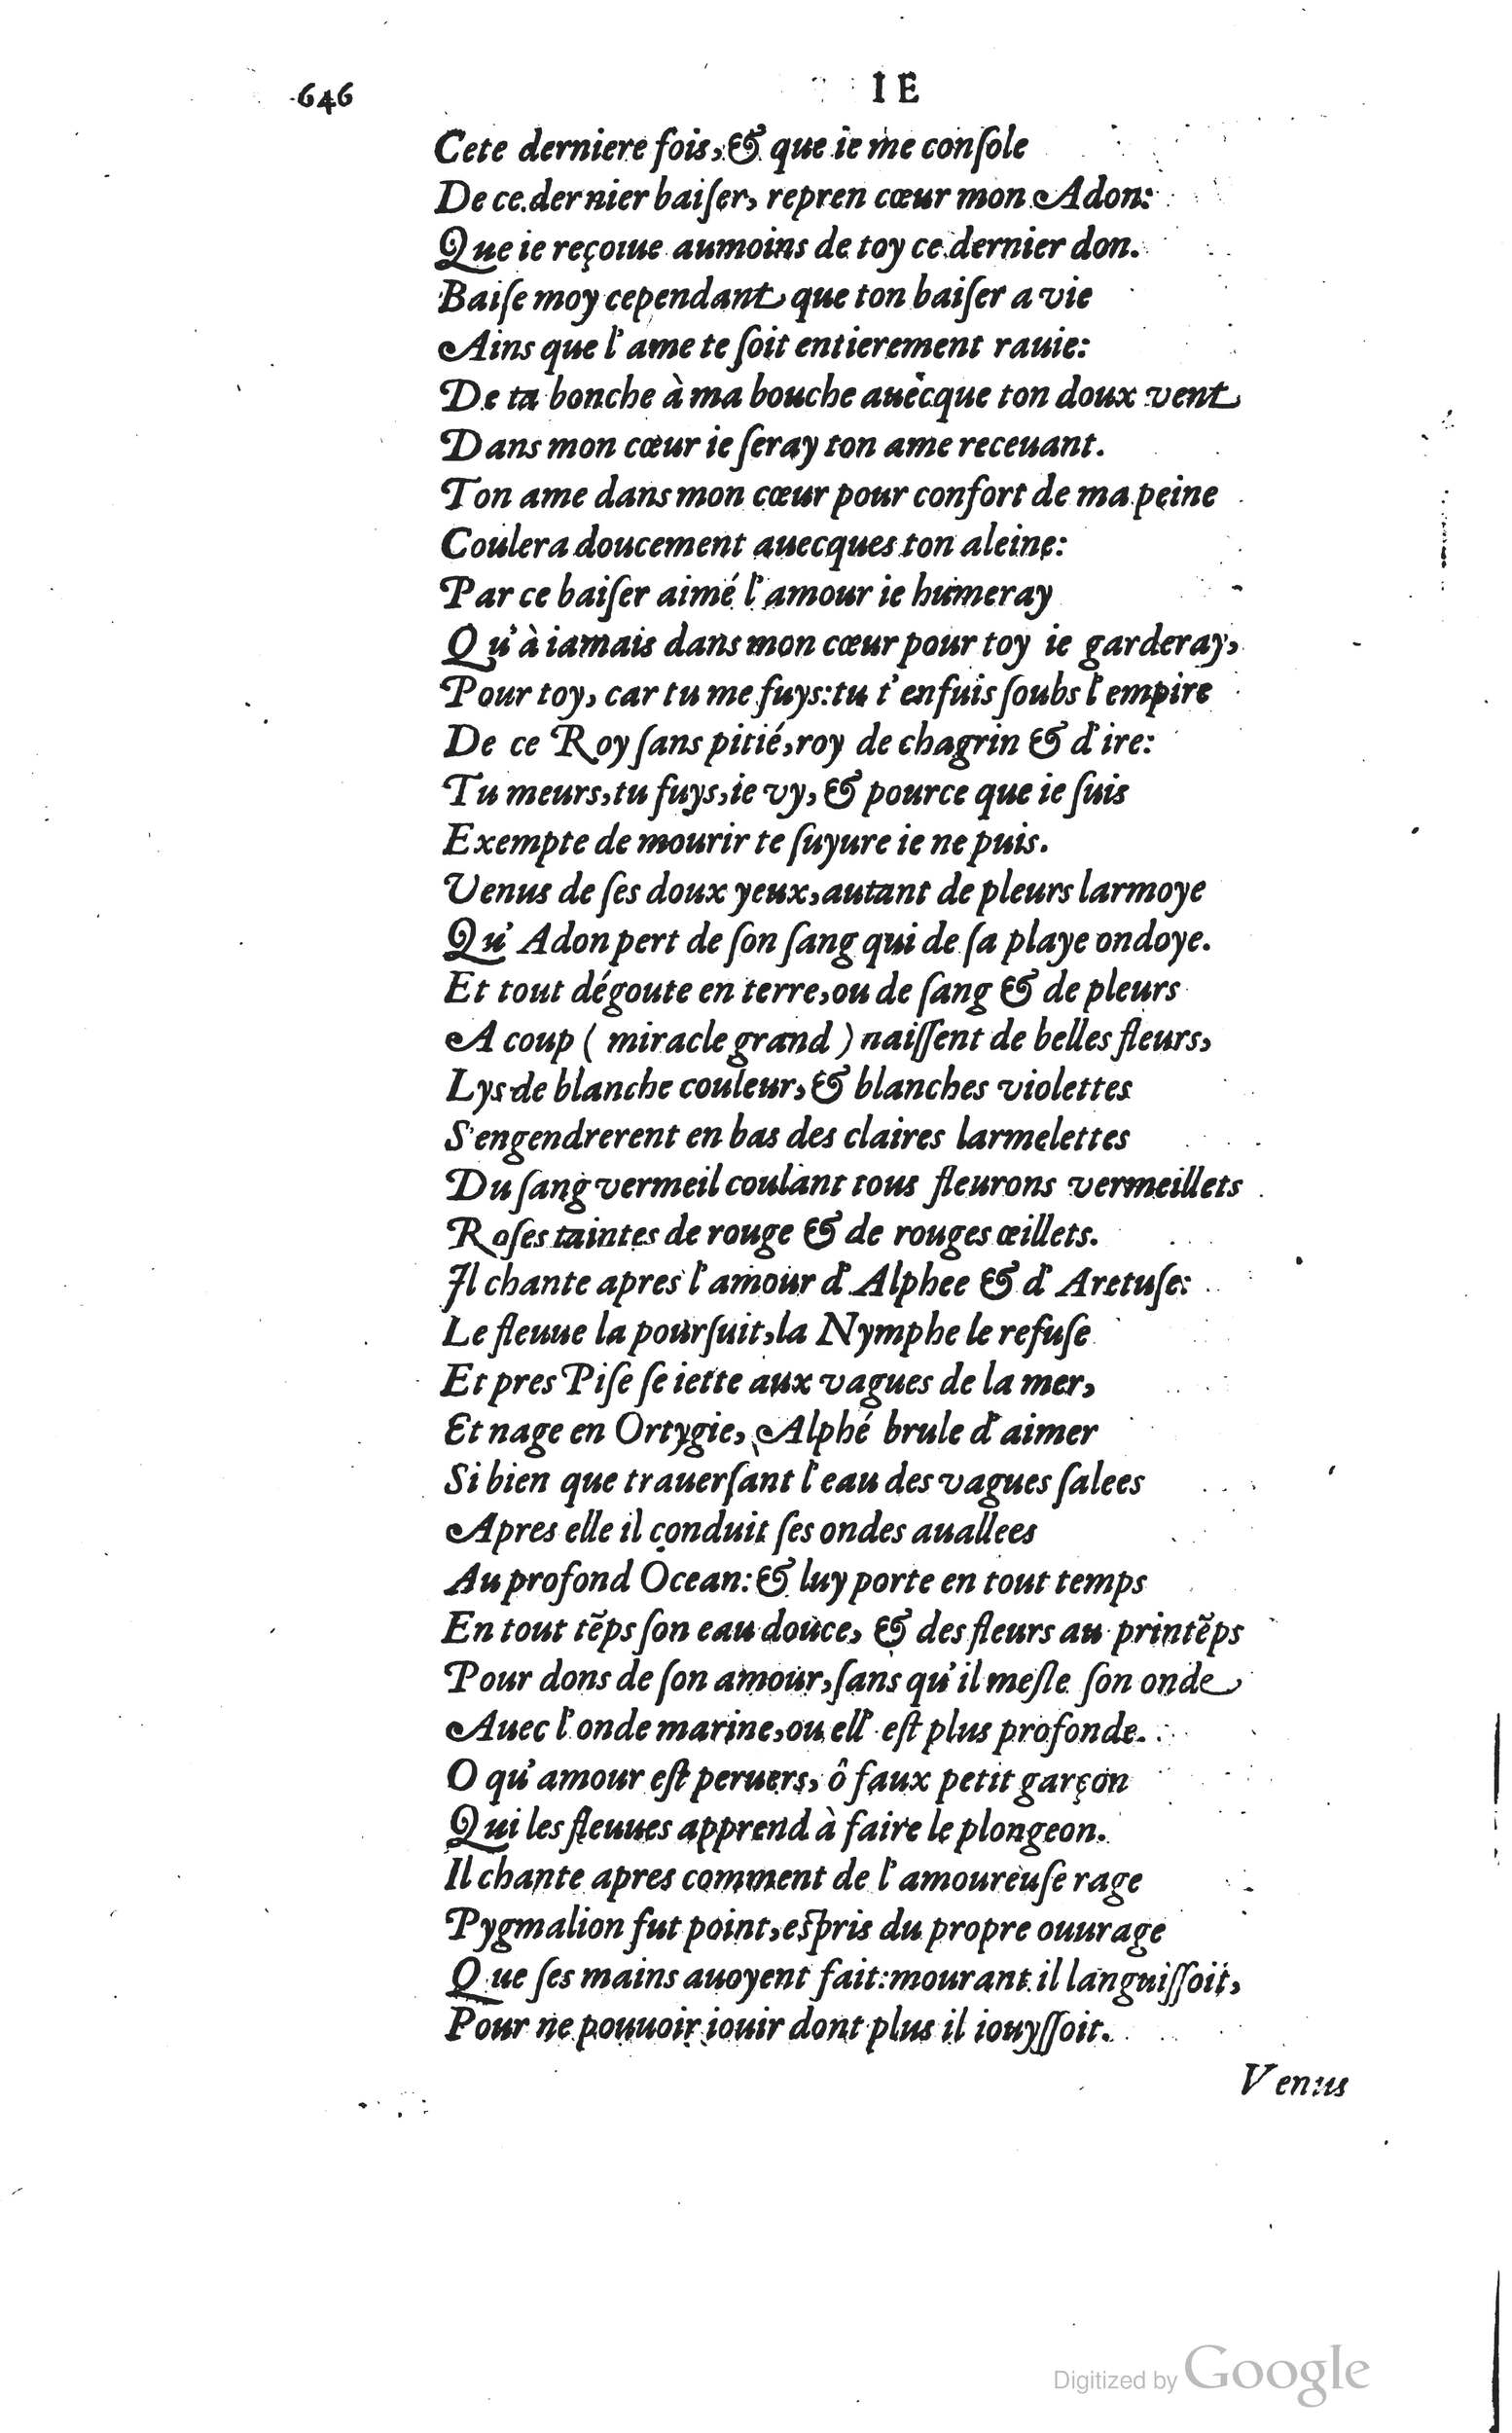 646
IE
Cete derniere fois, & que ie me conſole
De ce dernier baiſer, repren cœur mon Adon:
Que ie reçoiue aumoins de toy ce dernier don.
Baiſe moy cependant que ton baiſer a vie
Ains que l'ame te ſoit entierement rauie:
De ta bonche à ma bouche auècque ton doux vent
Dans mon cœur ie ſeray ton ame receuant.
Ton ame dans mon cœur pour confort de ma peine
Coulera doucement auecques ton aleine:
Par ce baiſer aimé l'amour ie humeray
Qu'à iamais dans mon cœur pour toy ie garderay,
Pour toy, car tu me fuys: tu t'enfuis ſoubs l'empire
De ce Roy ſans pitié, roy de chagrin & d'ire:
Tu meurs, tu fuys, ie vy, & pource que ie ſuis
Exempte de mourir te ſuyure ie ne puis.
Venus de ſes doux yeux, autant de pleurs larmoye
Qu'Adon pert de ſon ſang qui de ſa playe ondoye.
Et tout dégoute en terre, ou de ſang & de pleurs
A coup ( miracle grand ) naiſſent de belles fleurs,
Lys de blanche couleur, & blanches violettes
S'engendrerent en bas des claires larmelettes
Du ſang vermeil coulant tous fleurons vermeillets
Roſes taintes de rouge & de rouges œillets.
Il chante apres l'amour d'Alphee & d'Aretuſe:
Le fleuue la pourſuit, la Nymphe le refuſe
Et pres Piſe ſe iette aux vagues de la mer,
Et nage en Ortygie, Alphé brule d'aimer
Si bien que trauerſant l'eau des vagues ſalees
Apres elle il conduit ſes ondes auallees
Au profond Ocean: & luy porte en tout temps
En tout tẽps ſon eau douce, & des fleurs au printẽps
Pour dons de ſon amour, ſans qu'il meſle ſon onde
Auec l'onde marine, ou ell' eſt plus profonde.
O qu'amour eſt peruers, ô faux petit garçon
Qui les fleuues apprend à faire le plongeon.
Il chante apres comment de l'amoureuſe rage
Pygmalion fut point, eſpris du propre ouurage
Que ſes mains auoyent fait: mourant il languiſſoit,
Pour ne pouuoir iouir dont plus il iouyſſoit.
Venus
Digitized by Google